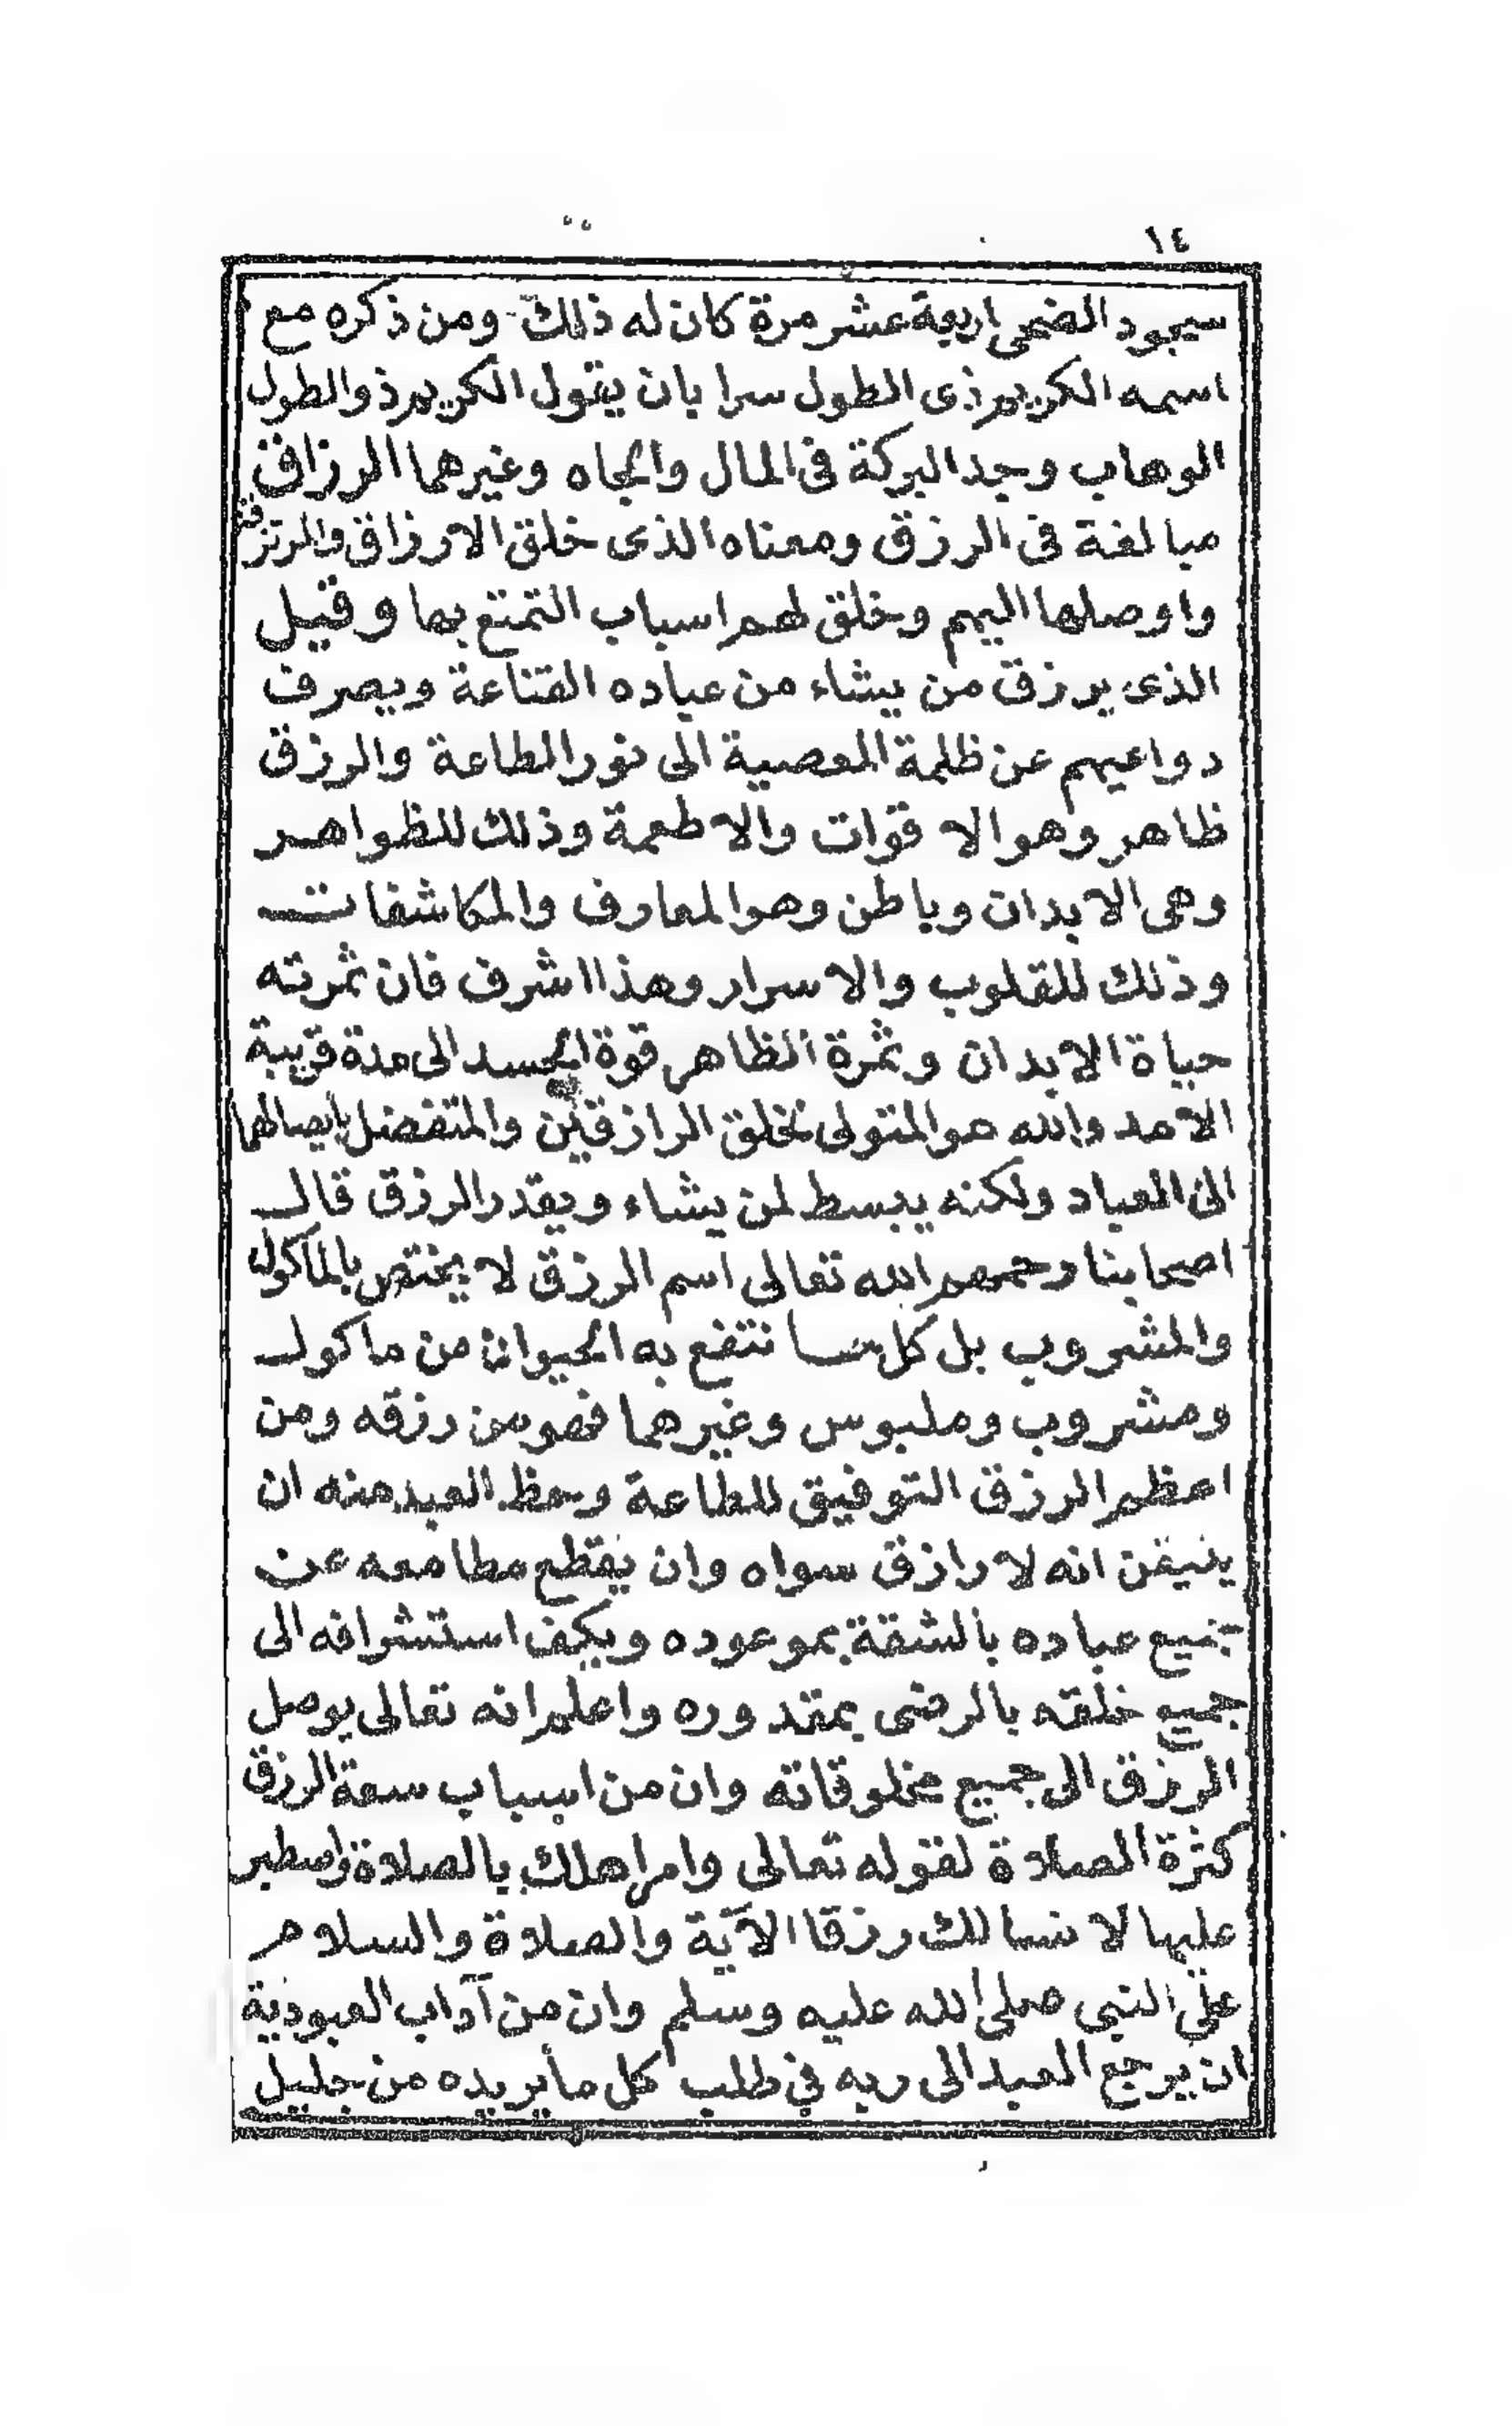 ١٤
سجود الضحى اربعة عشر مرة كان له ذلك ومن ذكره مع
اسمه الكريم ذى الطول سرا بان يقول الكريم ذو الطول
الوهاب وجد البركة فى المال والجاه وغيرهما الرزاق
مبالغة فى الرزق ومعناه الذى خلق الارزاق والمرتزقة
واوصلها اليهم وخلق لهم اسباب التمتع بها وقيل
الذى يرزق من يشاء من عباده القناعة ويصرف
دواعيهم عن ظلمة المعصية الى نور الطاعة والرزق
ظاهر وهو الاقوات والاطعمة وذلك للظواهر
وهى الابدان وباطن وهو المعارف والمكاشفات
وذلك للقلوب والاسرار وهذا اشرف فان ثمرته
حياة الابدان وثمرة الظاهر قوة الجسد الى مدة قريبة
الامد والله هو المتولى لخلق الرازقين والمتفضل بايصالهما
الى العباد ولكنه يبسط لمن يشاء ويقدر الرزق قال
اصحابنا رحمهم الله تعالى اسم الرزق لا يختص بالماكول
والمشروب بل كل ما نتفع به الحيوان من ماكول
ومشروب وملبوس وغيرهما فهو من رزقه ومن
اعظم الرزق التوفيق للطاعة وحظ العبد منه ان
يتيقن انه لا رازق سواه وان يقطع مطامعه عن
جميع عباده بالثقة بموعوده ويكف استشرافه الى
جميع خلقه بالرضى بمقدوره واعلم انه تعالى يوصل
الرزق الى جميع مخلوقاته وان من اسباب سعة الرزق
كثرة الصلاة لقوله تعالى وامر اهلك بالصلاة واصطبر
عليها لا نسالك رزقا الآية والصلاة والسلام
على النبى صلى الله عليه وسلم وان من آداب العبودية
ان يرجع العبد الى ربه فى طلب كل ما يريده من جليل